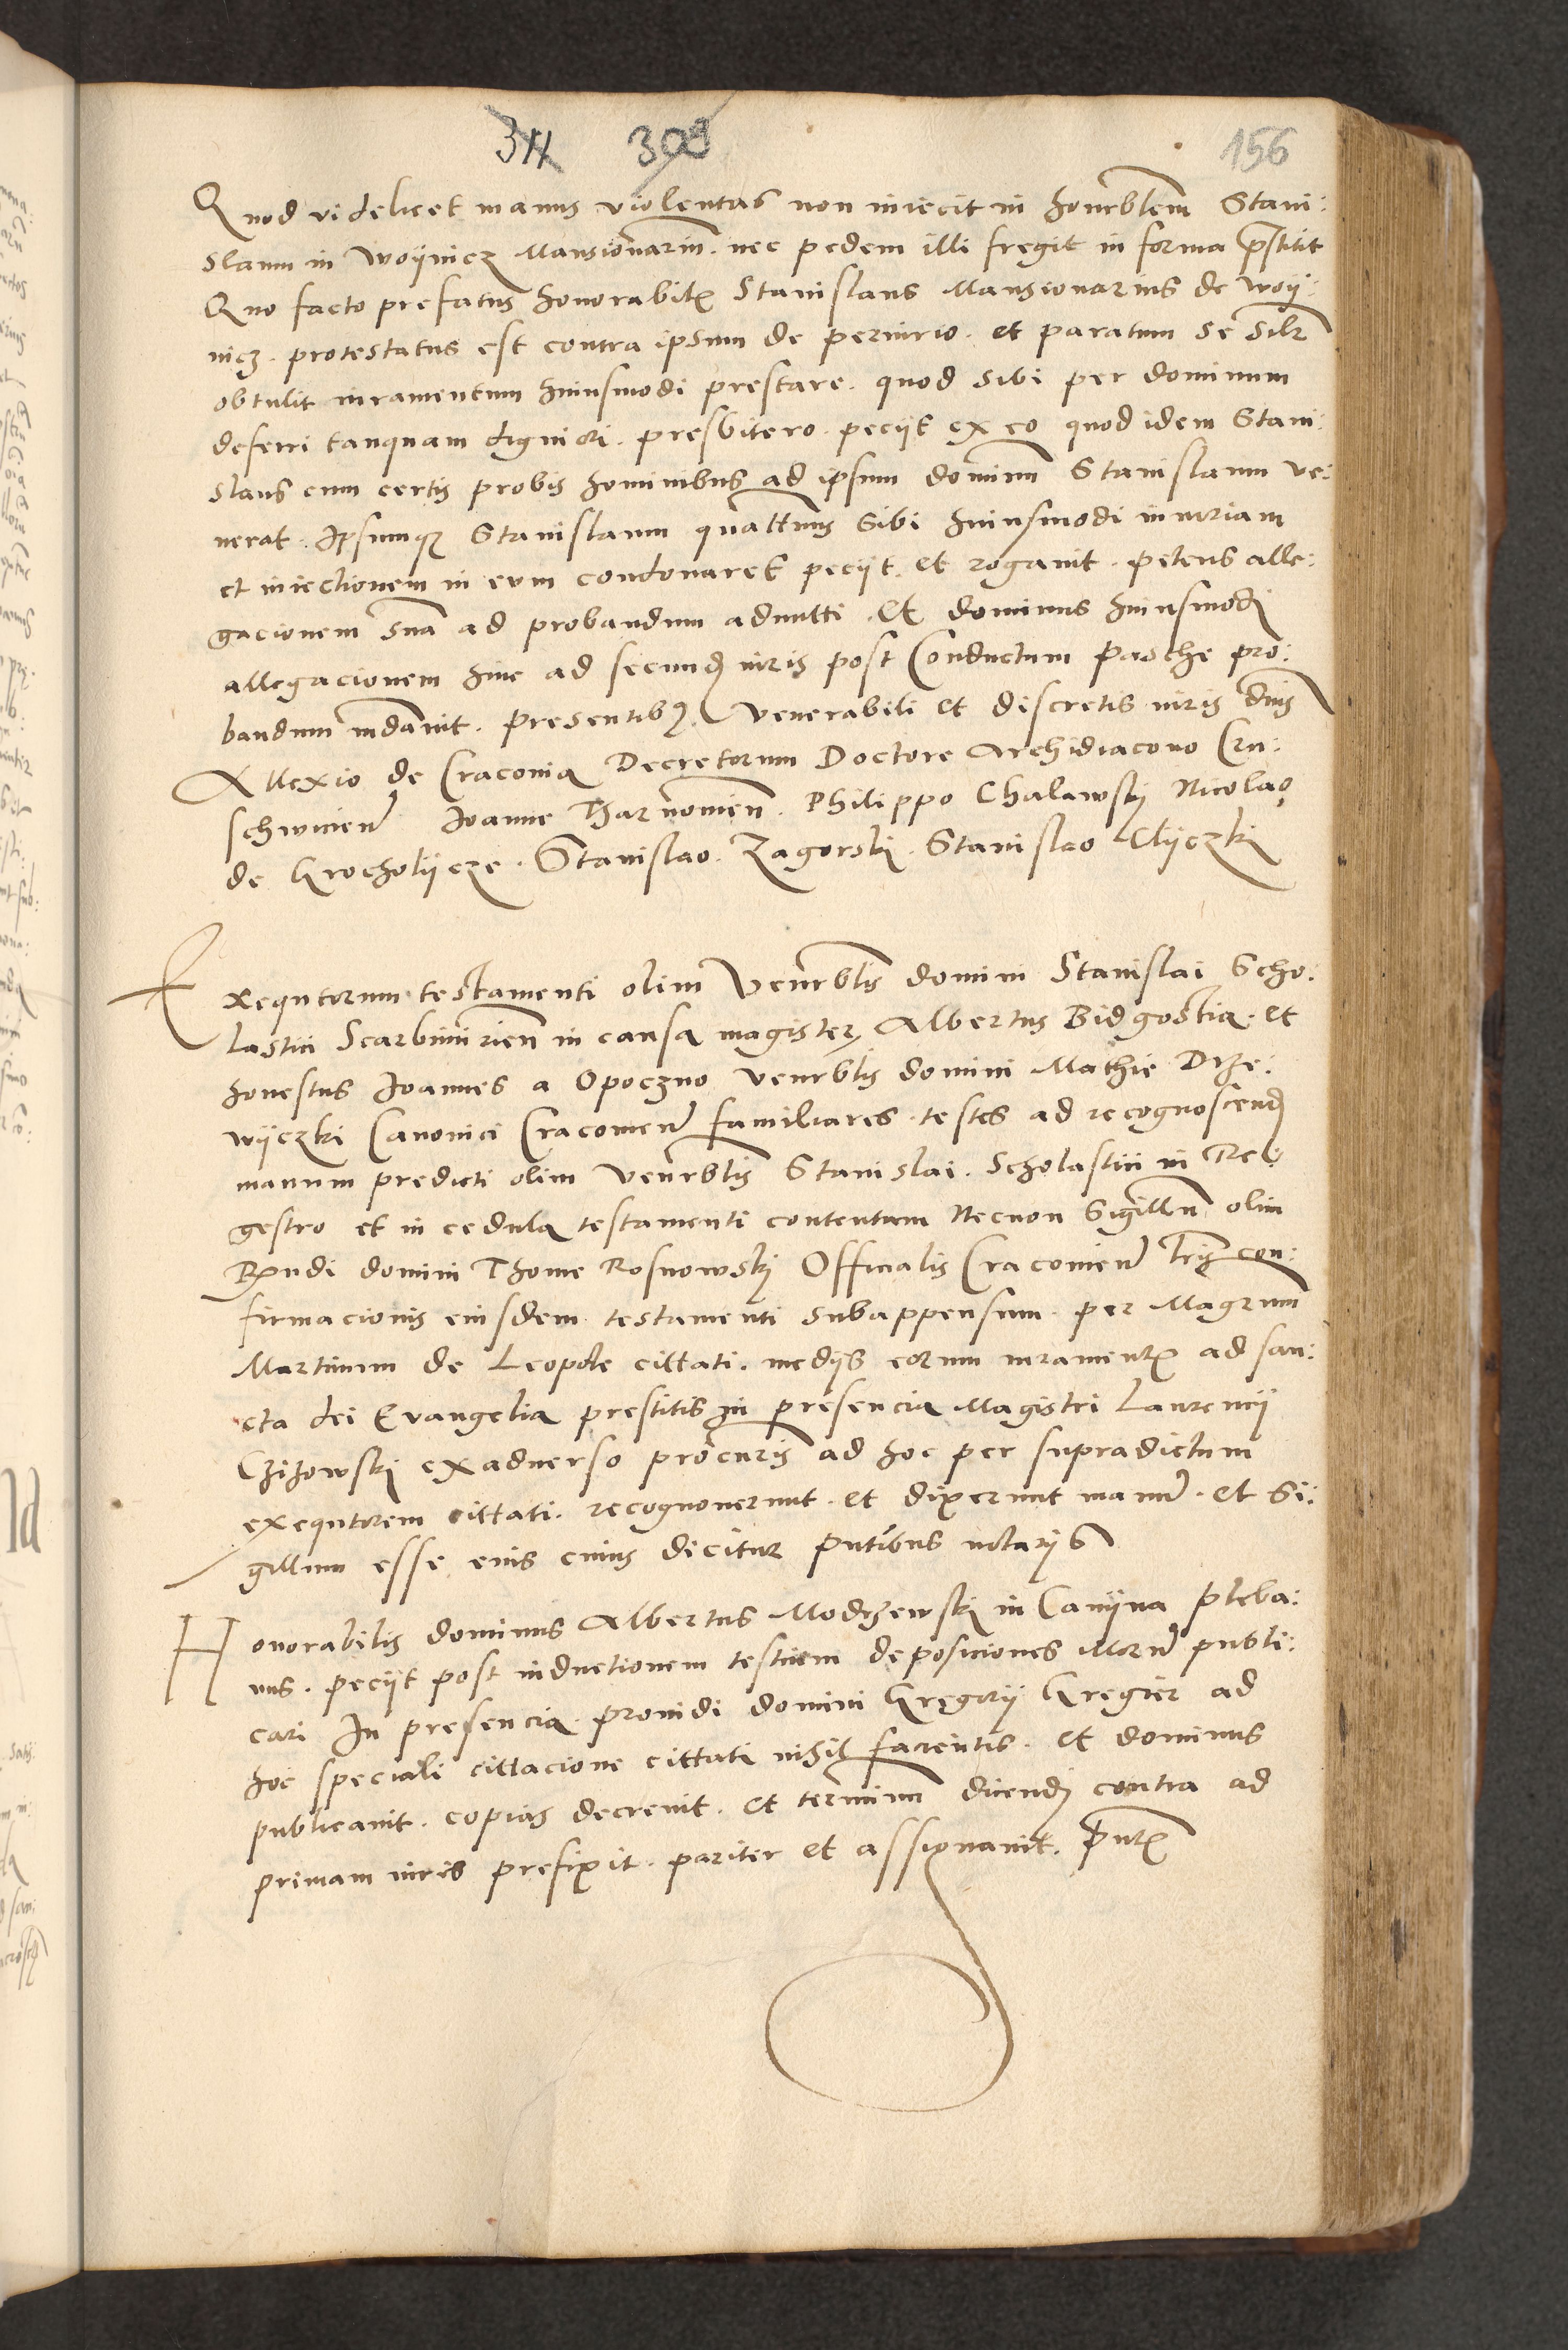 311 308 156
Quod videlicet manus violentas non iniecit in honrblem Stani:
slaum in Woÿnicz Mansionariu. nec pedem illi fregit in forma prestitit
Quo facto prefatus honorabilis Stanislaus Mansionarius de Woÿ:
nicz. protestatus est contra ipsum de periurio. et paratum se silr
obtulit iuramentum huiusmodi prestare. quod sibi per dominum
deferri tanquam digniori. presbitero. peciit ex eo quod idem Stani:
slaus cum certis probis hominibus ad ipsum dominu Stanislaum ve:
nerat. Ipsumqz Stanislaum quattnus sibi huiusmodi iniuriam
et iniectionem in eum condonaret peciit. et rogauit. petens alle:
gacionem sua ad probandum admitti. Et dominus huiusmodi
allegacionem hinc ad secund iuris post Conductum Pasche pro:
bandum mdauit. presentibz. Venerabili et discretis viris dnis
Allexio de Craconia Decretorum Doctore Archidiacono Cru:
schwicien Joanne Tharnowien. Philippo Chalawski Nicolao
de Krocholÿcze. Stanislao. Zagorski. Stanislao Clÿczki
Exequtorum testamenti olim Venrblis domini Stanislai Scho:
lastici Scarbimirien in causa magister Albertus Bidgostia. et
honestus Joannes a Opoczno venrblis domini Mathie Drze:
wÿczki Canonici Cracouien familiares testes ad recognoscend
manum predicti olim venrblis Stanislai. Scholastici in Re:
gestro et in cedula testamenti contentam Necnon Sigillu olim
Rndi domini Thome Rosnowski Officialis Cracouien lris con:
firmacionis eiusdem testamenti subappensum. per Magrum
Martinum de Leopole cittati. medijs eorum iuramentis ad san:
cta dei Evangelia prestitis in presencia Magistri Laurencij
Czizowski ex aduerso procuris ad hoc per supradictum
exequtorem cittati. recognouerunt. et dixerunt manu. et Si:
gillum esse eius cuius dicitur pntibus notarijs
Honorabilis dominus Albertus Modrzewski in Camÿna Pleba:
nus. peciit post inductionem testium deposiciones eorum publi:
cari In presencia prouidi domini Gregorij Gregier ad
hoc speciali cittacione cittati nihil facientis. et dominus
publicauit. copias decreuit. et terminu dicendi contra ad
primam iuris prefixit. pariter et assignauit. Pntis